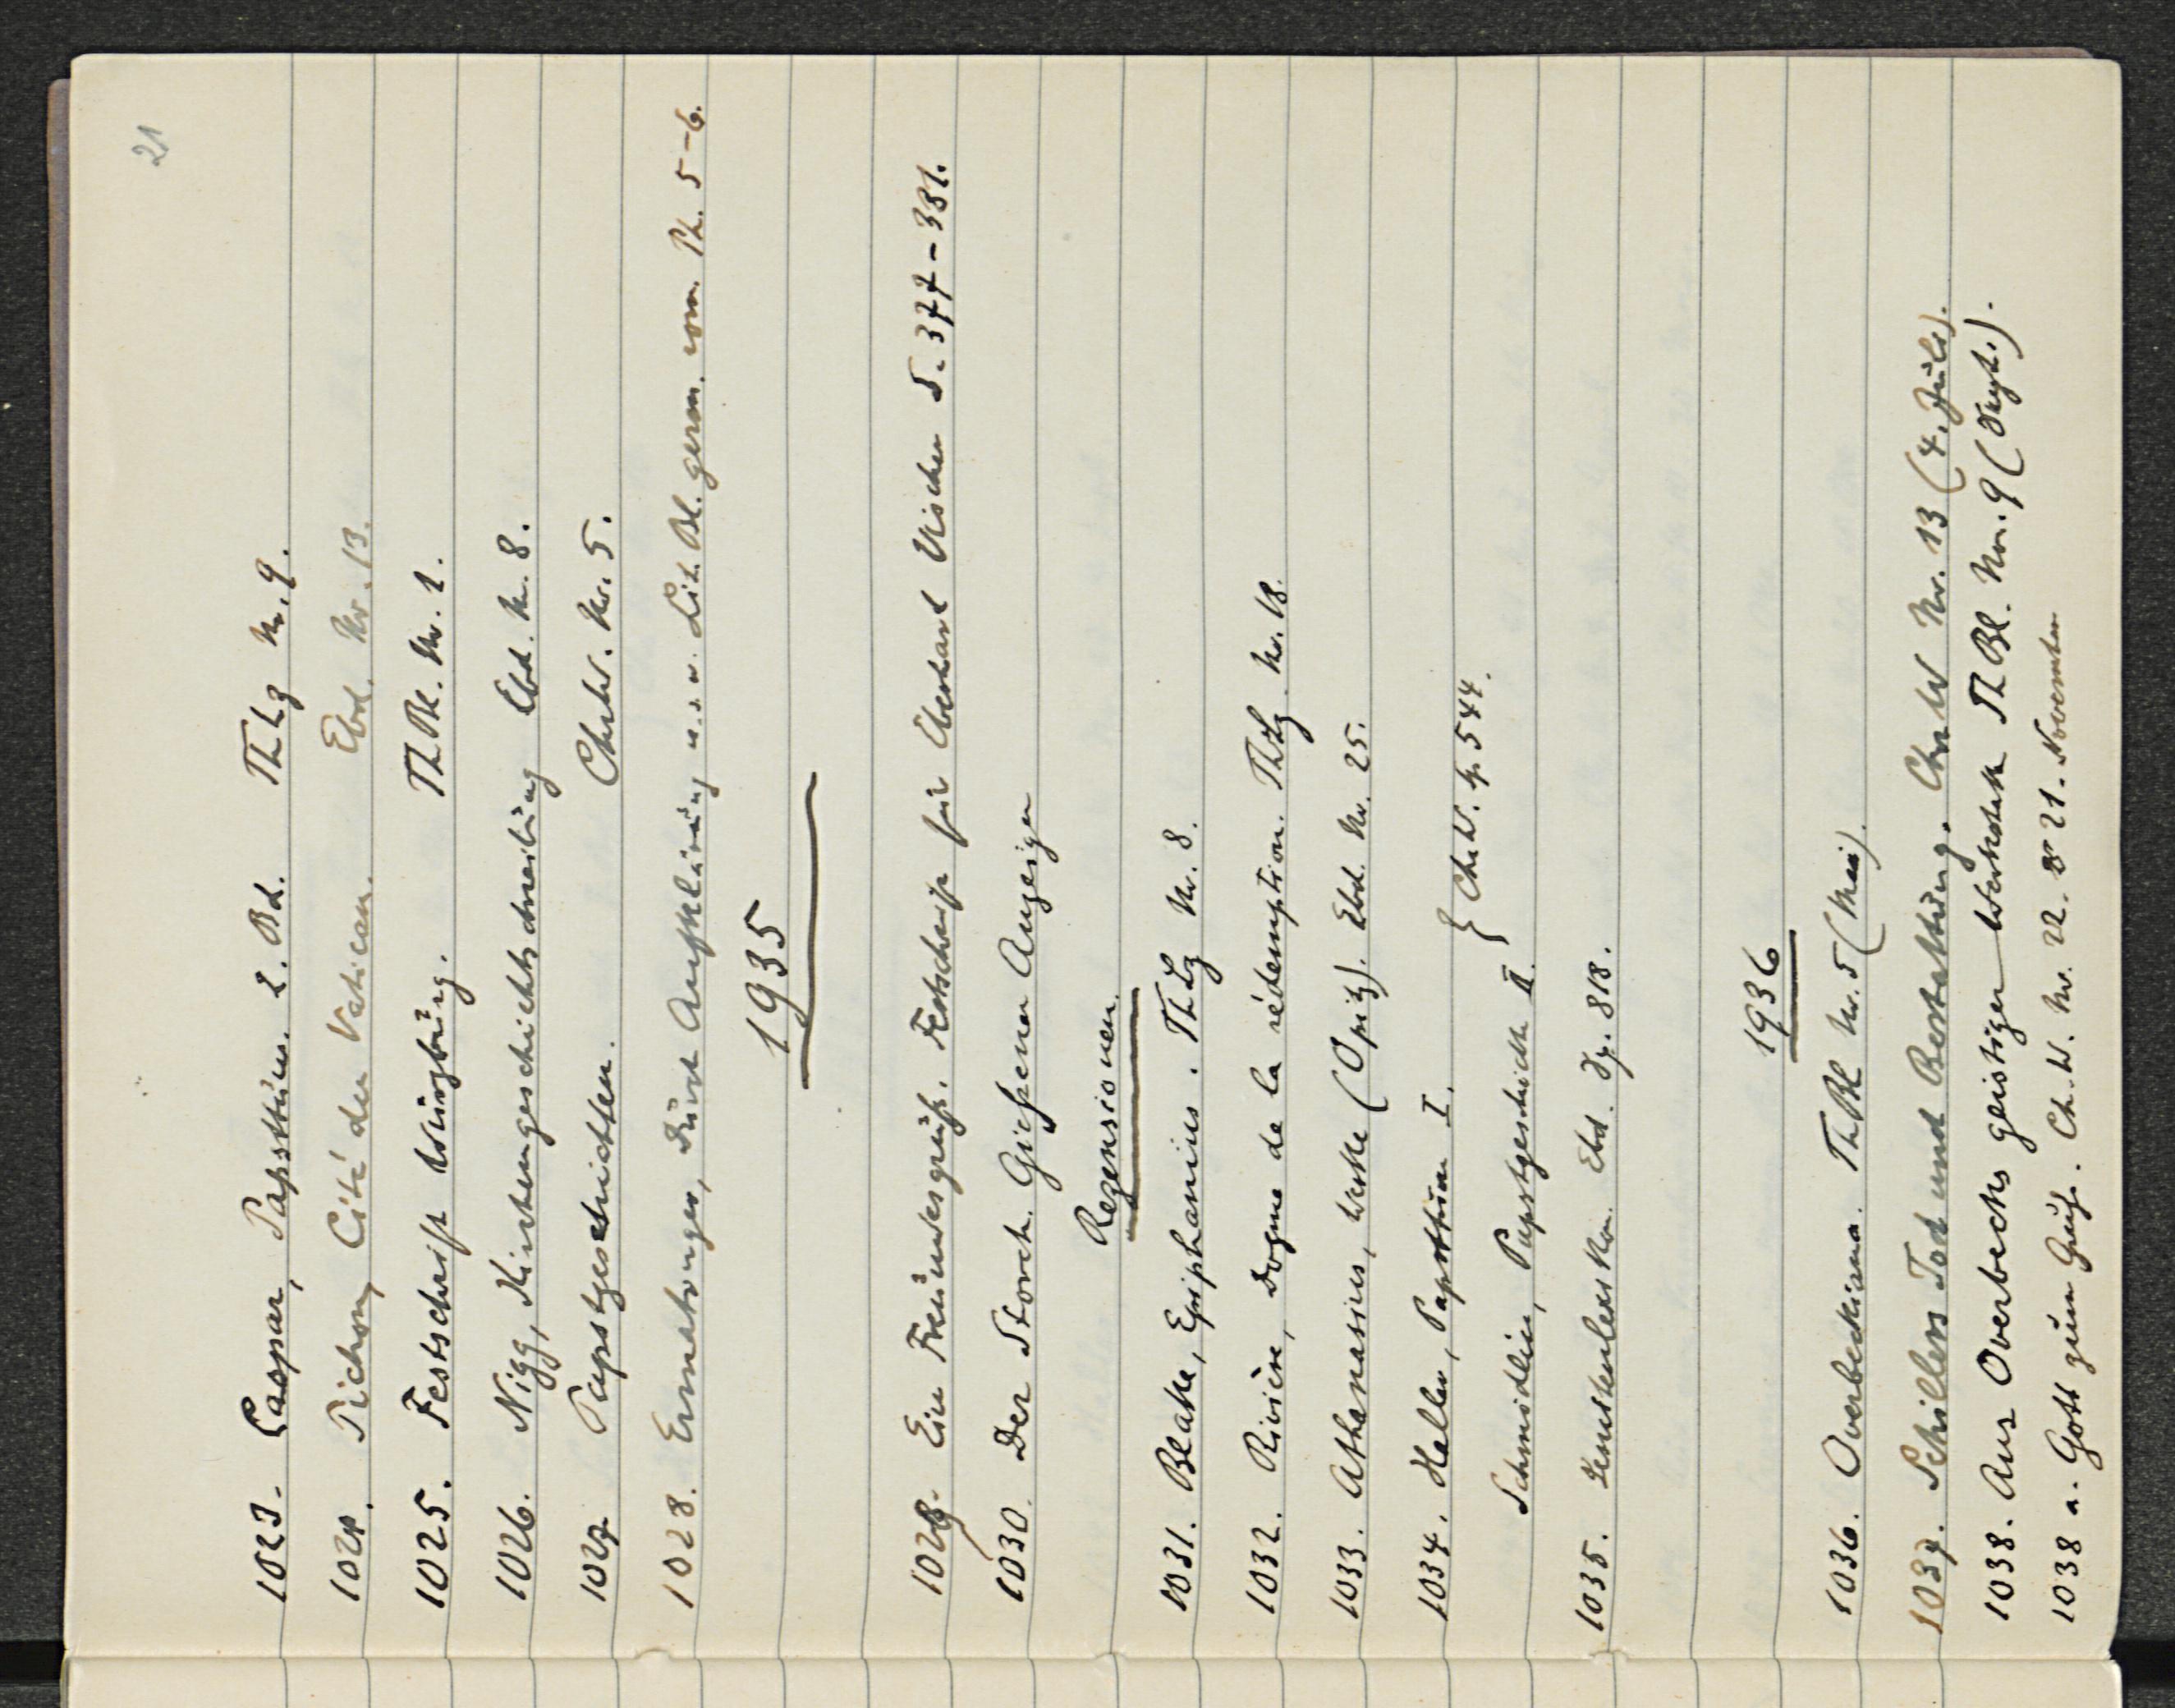 21
1023. Caspar, Papsttum. 2. Bd. ThLz Nr. 9.
1024. Pichon, Cité du Vatican. Ebd. Nr. 13.
1025. Festschrift Würzburg. ThBl. Nr. 1.
1026. Nigg, Kirchengeschichtschreibung Ebd. Nr. 8.
1027 Papstgeschichten. ChrW. Nr. 5.
1028. Ermatinger, Durch Aufklärung u.s.w. Lit. Bl. germ. rom. Ph. 5-6.
1935
1029. Ein Freundesgruß. Festschrift für Eberhard Vischer S. 377-381.
1030. Der Storch. Gießener Anzeiger
Rezensionen.
1031. Blake, Epiphanius. ThLz Nr. 8.
1032. Rivière, Dogme de la rédemption. ThLz. Nr. 18.
1033. Athanasius, Werke (Opitz). Ebd. Nr. 25.
1034. Haller, Papsttum I.
Schmidlin, Papstgeschichte II. } Chr.W. Sp. 544.
1035. Ebd. Sp. 818.
1936
1036. Overbeckiana. ThBl Nr. 5 (Mai).
1037. Schillers Tod und Bestattung. ChrW Nr. 13 (4. Juli).
1038. Aus Overbecks geistiger Werkstatt ThBl. Nr. 9 (Sept.).
1038 a. Gott zum Gruß. Ch.W. Nr. 22. 21. November